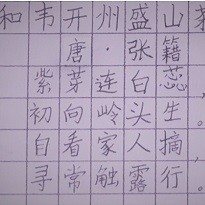 和韦开州盛山
唐·张籍
紫芽连白蕊，
初向岭头生。
自看家人摘，
寻常触露行。